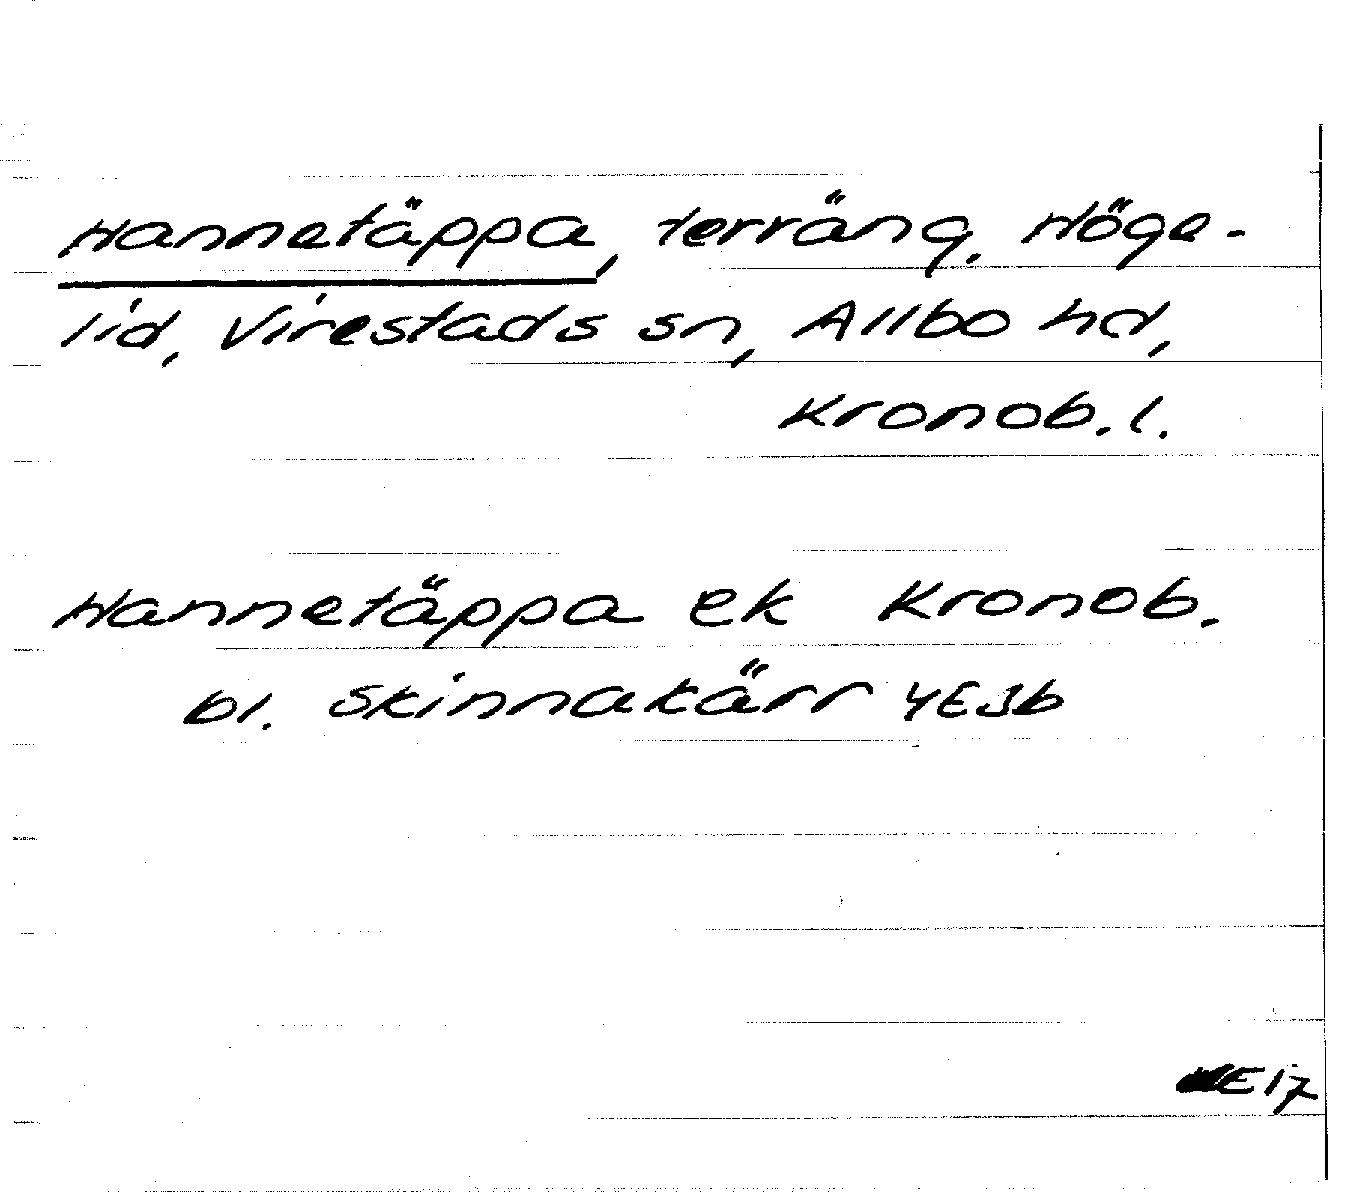 Hannetäppa, terräng. Höge-
lid, Virestads sn, Allbo hd,
Kronob. l.
Hannetäppa ek Kronob.
bl. Skinnakärr 4E3b
E17